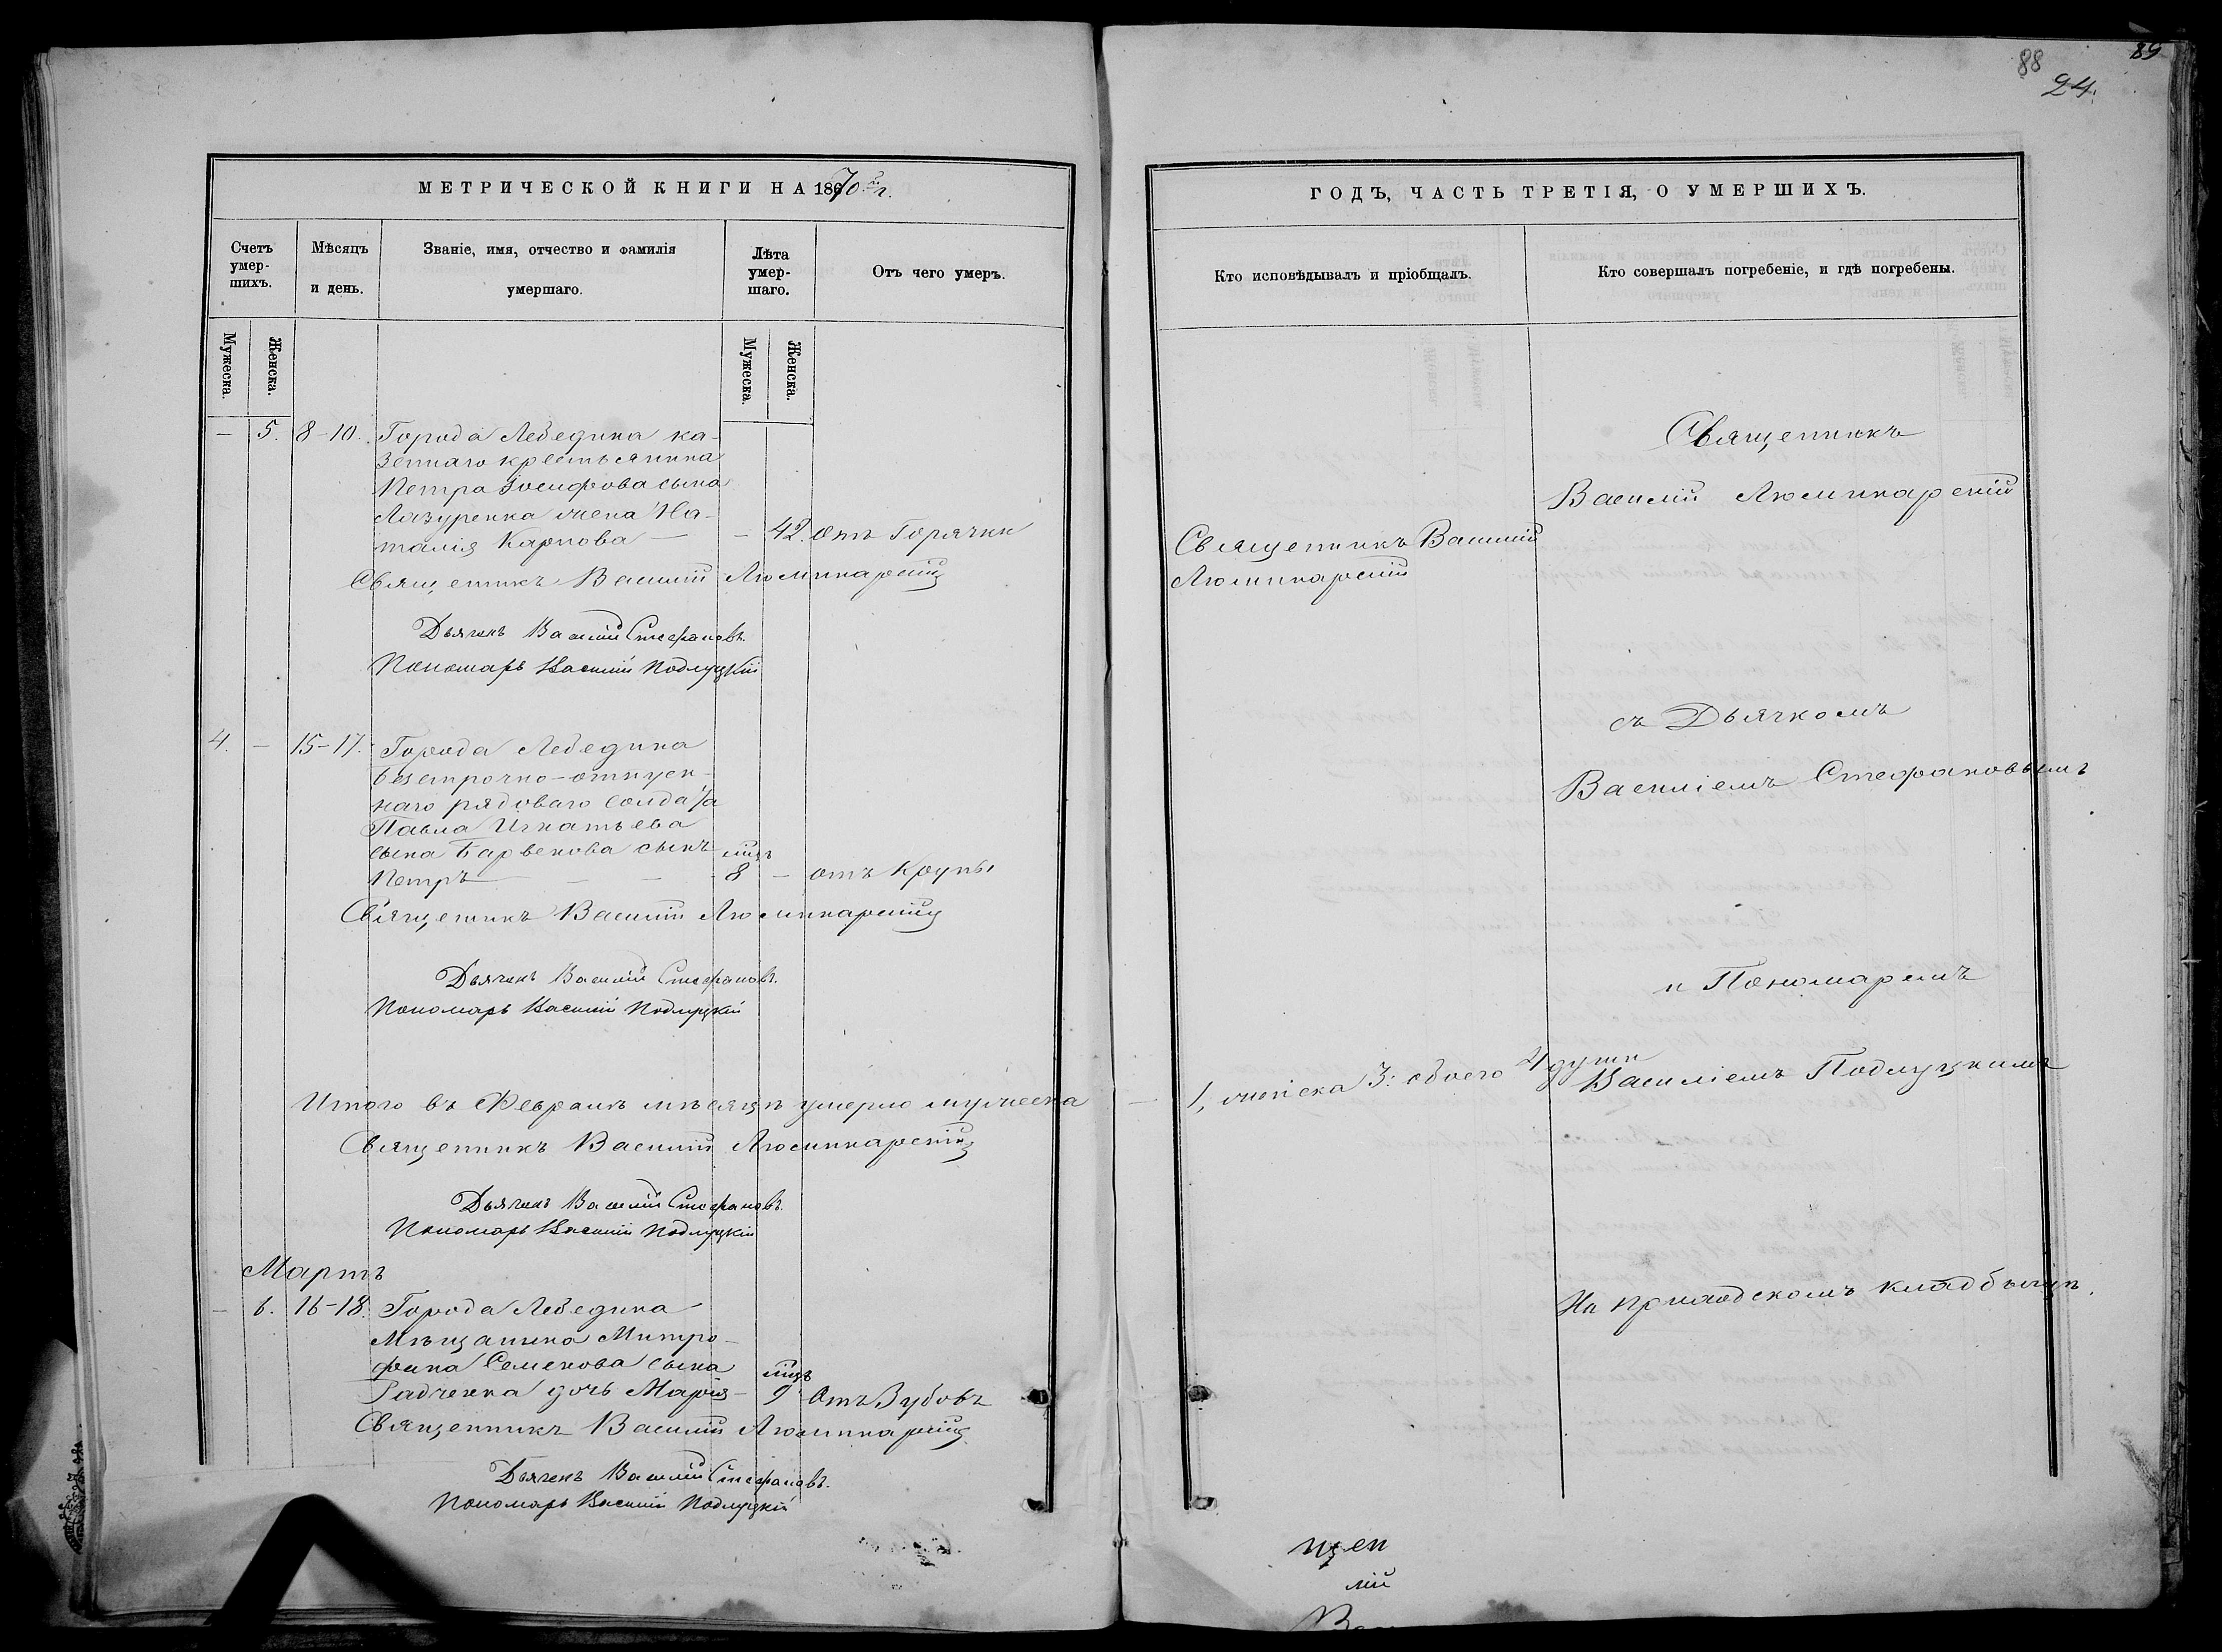 88
89
24.
МЕТРИЧЕСКОЙ КНИГИ НА 1870 г.
Счетъ умер-шихъ.
Мѣсяцъ и день.
Званіе, имя, отчество и фамилія умершаго.
Лѣта умер-шаго.
Отъ чего умеръ.
Мужеска.
Женска.
Мужеска.
Женска.
— 5. 8-10. Города Лебедина ка-
зеннаго крестьянина
Петра Іосифова сына
Лазуренка жена На-
талія Карпова — — 42. отъ Горячки
Священникъ Василій Люминарскій
Дьячекъ Василій Стефановъ.
Пономарь Василій Подлуцкій
4. — 15-17. Города Лебедина
безсрочно-отпуск-
наго рядоваго солдата
Павла Игнатьева
сына Барвенова сынъ мцъ
Петръ — — — 8 — отъ Крупы
Священникъ Василій Люминарскій
Дьячекъ Василій Стефановъ.
Пономарь Василій Подлуцкій
Итого въ Февралѣ мѣсяцѣ умерло мужеска — 1, женска 3: обоего 4 души
Священникъ Василій Люминарскій
Дьячекъ Василій Стефановъ.
Пономарь Василій Подлуцкій
Мартъ
— 6. 16-18. Города Лебедина
Мѣщанина Митро-
фана Семенова сына мцъ
Радченка дочь Марія — 9 Отъ Зубовъ
Священникъ Василій Люминарскій
Дьячекъ Василій Стефановъ.
Пономарь Василій Подлуцкій
ГОДЪ, ЧАСТЬ ТРЕТІЯ, О УМЕРШИХЪ.
Кто исповѣдывалъ и пріобщалъ.
Кто совершалъ погребеніе, и гдѣ погребены.
Священникъ Василій
Люминарскій
Священникъ
Василій Люминарскій
съ Дьячкомъ
Василіемъ Стефановымъ
и Пономаремъ
Василіемъ Подлуцкимъ
На приходскомъ кладбищѣ.
щен
лій